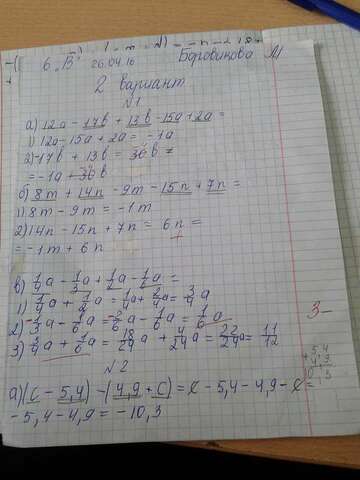 6 „В" 26.04.16 Боровикова М
2 вариант
№1
а) 12a - 17b + 13b - 15a + 2a =
1) 12a - 15a + 2a = -1a
2) -17b + 13b = 30b =
= -1a + 30b
б) 8m + 14n - 9m - 15n + 7n =
1) 8m - 9m = -1m
2) 14n - 15n + 7n = 6n =
= -1m + 6n
в) 1/4a - 1/3a + 1/2a - 1/6a =
1) 1/4a + 1/2a = 1/4a + 2/4a = 3/4a
2) -1/3a - 1/6a = -2/6a - 1/6a = 1/6a
3) 3/4a + 1/6a = 18/24a + 4/24a = 22/24a = 11/12
3-
№2
5,4
+ 4,9
10,3
а) (c - 5,4) - (4,9 + c) = c - 5,4 - 4,9 - c =
- 5,4 - 4,9 = -10,3